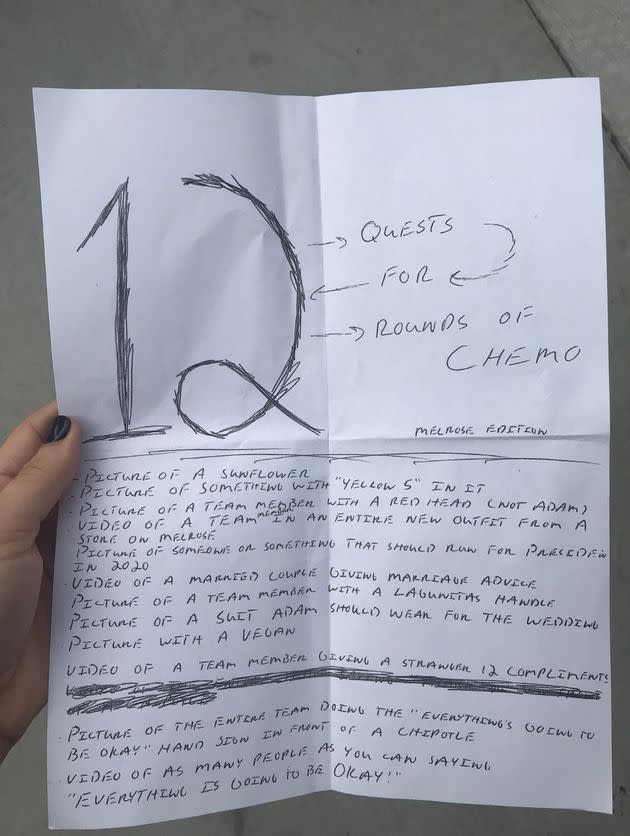 12 → QUESTS
← FOR
→ ROUNDS OF
CHEMO
MELROSE EDITION
· PICTURE OF A SUNFLOWER
· PICTURE OF SOMETHING WITH "YELLOW 5" IN IT
· PICTURE OF A TEAM MEMBER WITH A RED HEAD (NOT ADAM)
· VIDEO OF A TEAM MEMBER IN AN ENTIRE NEW OUTFIT FROM A
STORE ON MELROSE
PICTURE OF SOMEONE OR SOMETHING THAT SHOULD RUN FOR PRECIDEN
IN 2020
· VIDEO OF A MARRIED COUPLE GIVING MARRIAGE ADVICE
PICTURE OF A TEAM MEMBER WITH A LAGUNITAS HANDLE
PICTURE OF A SUIT ADAM SHOULD WEAR FOR THE WEDDING
PICTURE WITH A VEGAN
VIDEO OF A TEAM MEMBER GIVING A STRANGER 12 COMPLIMENTS
· PICTURE OF THE ENTIRE TEAM DOING THE "EVERYTHING'S GOING TO
BE OKAY" HAND SIGN IN FRONT OF A CHIPOTLE
· VIDEO OF AS MANY PEOPLE AS YOU CAN SAYING
"EVERYTHING IS GOING TO BE OKAY!"